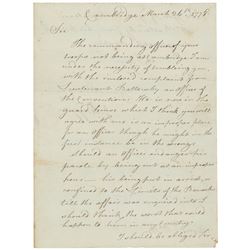 Cambridge March 26th 1778
Sir
The commanding officer of your
troops not being at Cambridge I am
under the necessity of troubling you
with the enclosed complaint from
Lieutenant an officer of
the Convention. He is now in the
guard house which I think you will
agree with me is an improper place
for an officer though he might in the
first instance be in the wrong.
Should an officer
by being out at an improper
hour — his being put in arrest, or
confined to the limits of the Barracks
till the affair was enquired into I
should think, the worst that could
happen to him in any country.
I should be obliged